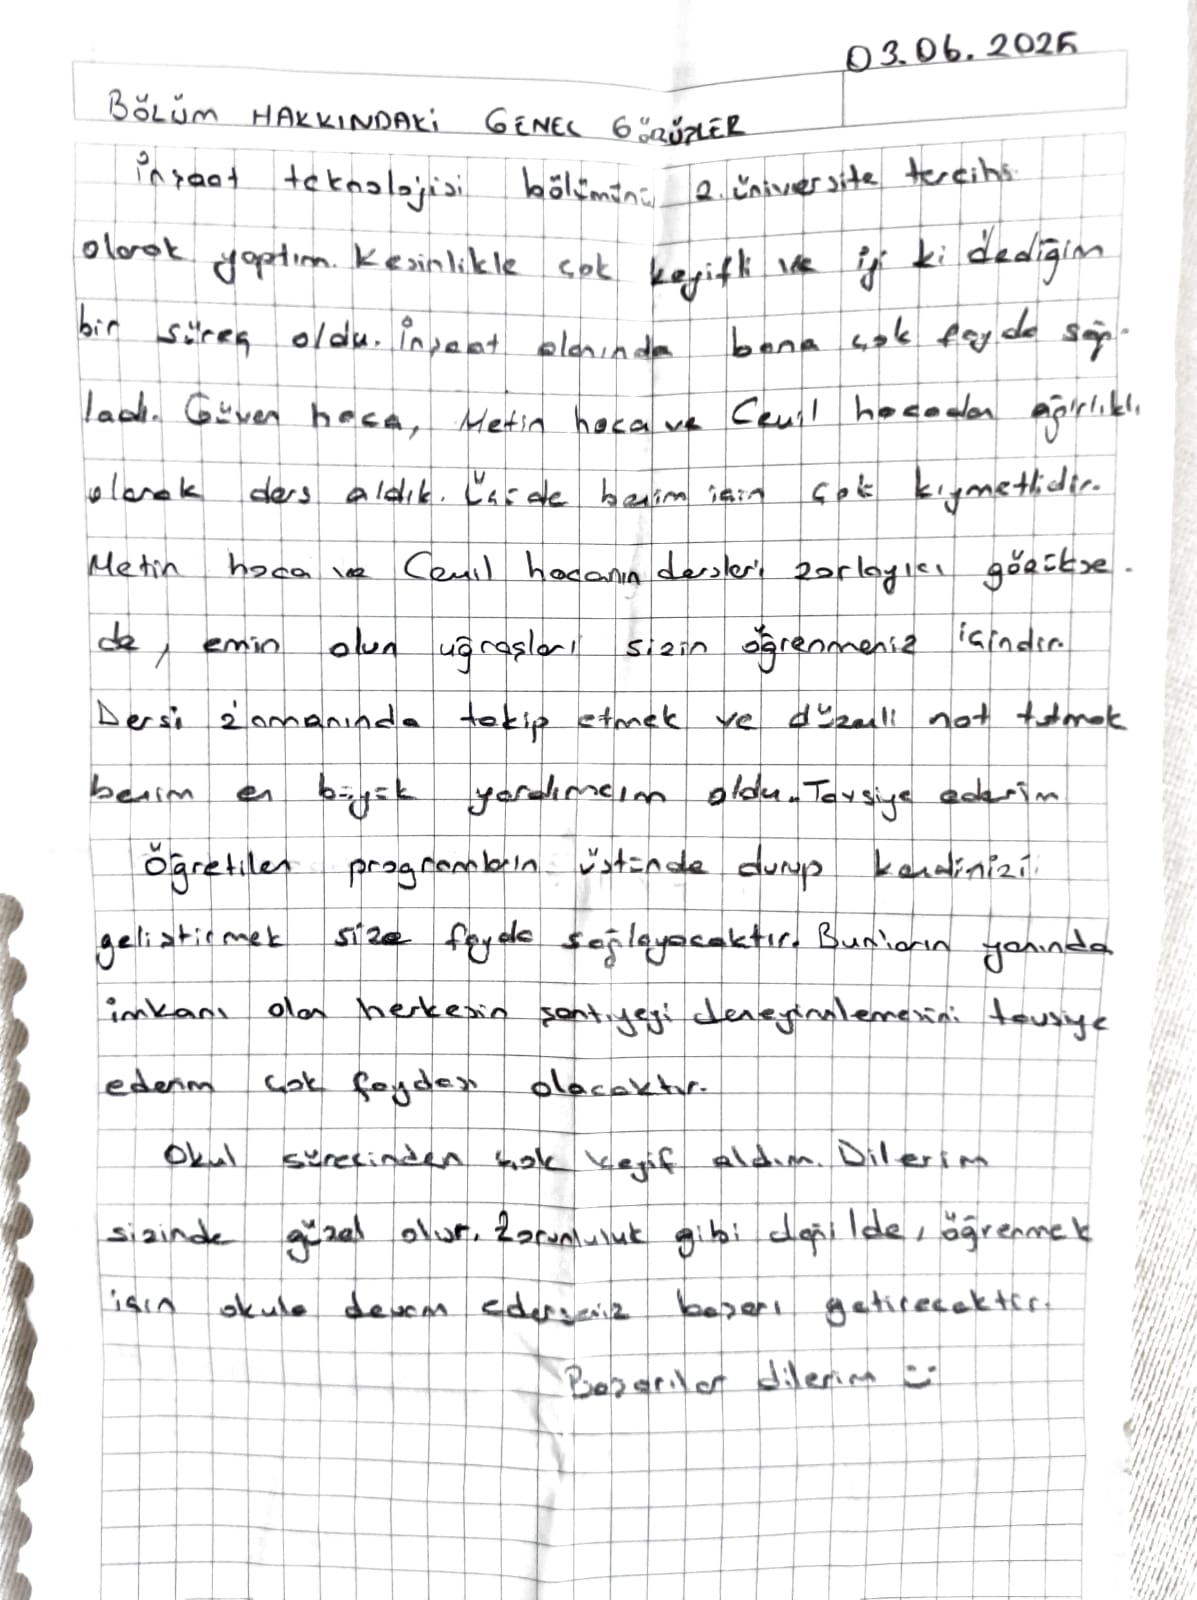 03.06.2025
BÖLÜM HAKKINDAKİ GENEL GÖRÜŞLER
İnşaat teknolojisi bölümünü 2. üniversite tercihi
olarak yaptım. Kesinlikle çok keyifli ve iyi ki dediğim
bir süreç oldu. İnşaat alanında bana çok fayda sağ-
ladı. Güven hoca, Metin hoca ve Cemil hocadan ağırlıklı
olarak ders aldık. Üçüde benim için çok kıymetlidir.
Metin hoca ve Cemil hocanın dersleri zorlayıcı gözükse
de, emin olun uğraşları sizin öğrenmeniz içindir.
Dersi zamanında takip etmek ve düzenli not tutmak
benim en büyük yardımcım oldu. Tavsiye ederim
Öğretilen programların üstünde durup kendinizi
geliştirmek size fayda sağlayacaktır. Bunların yanında
imkanı olan herkesin şantiyeyi deneyimlemesini tavsiye
ederim çok faydası olacaktır.
Okul sürecinden çok keyif aldım. Dilerim
sizinde güzel olur. Zorunluluk gibi değilde, öğrenmek
için okula devam ederseniz başarı getirecektir.
Başarılar dilerim :)